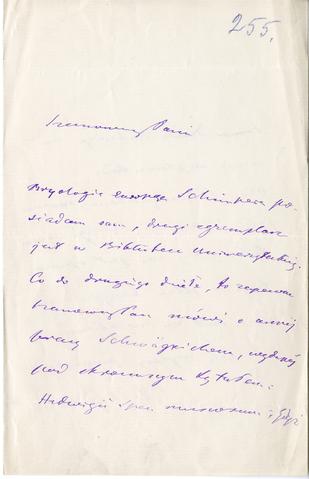 255.
Szanowny Panie
Bryologia europea Schimpera po-
siadam sam, drugi egzemplarz
jest w Bibliotece Uniwersyteckiej.
Co do drugiego dzieła, to zapewne
Szanowny Pan mówi o
pracy Schwägrichena, wydanej
pod skromnym tytułem:
Hedwigii Spec. muscorum i gdyż